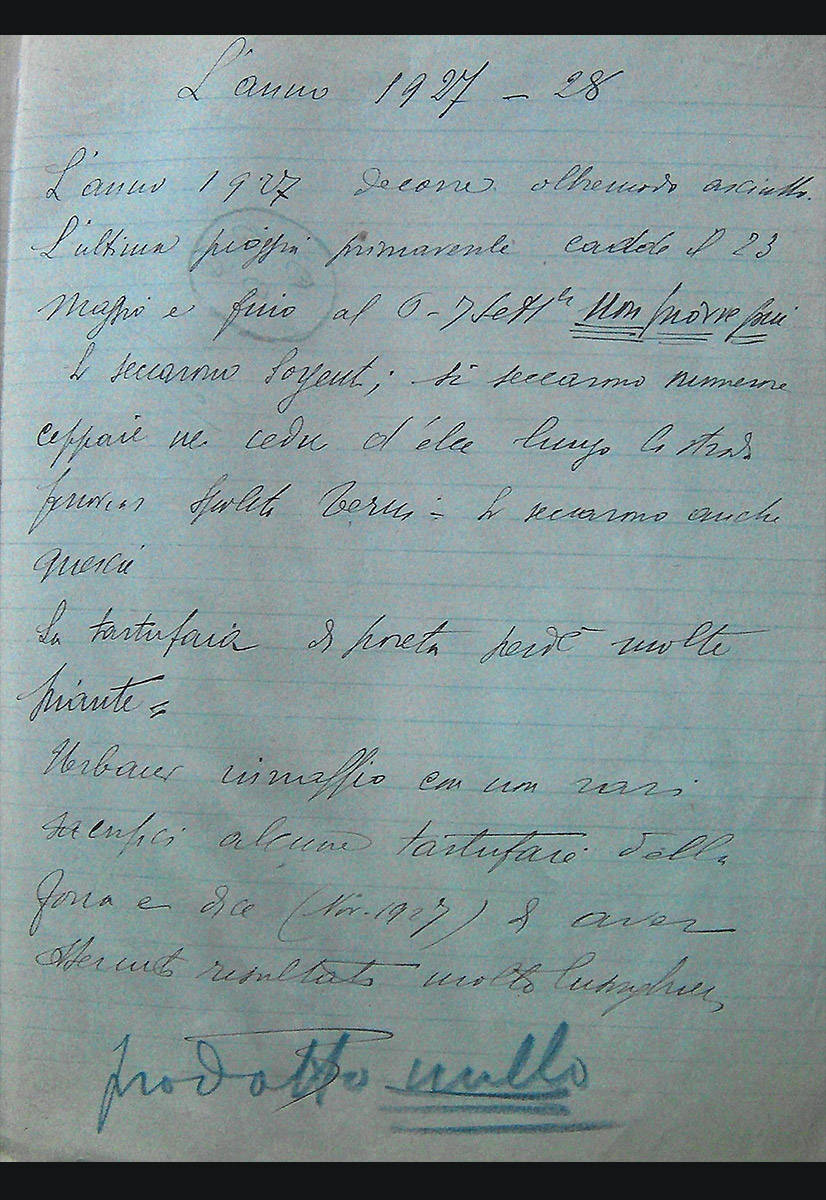 L'anno 1927 - 28
L'anno 1927 decorre oltremodo asciutto.
L'ultima pioggia primaverile cadde il 23
Maggio e fino al 6-7 Sett.bre non piovve più
Si seccarono sorgenti; si seccarono numerose
ceppaie nei cedui d'elce lungo la strada
ferrovia Spoleto Terni = Si seccarono anche
querce
La tartufaia di poreta perdè molte
piante =
Urbani innaffiò con non rari
sacrifici alcune tartufaie della
zona e dice (Nov. 1927) di aver
ottenuto resultato molto lusinghiero
prodotto nullo